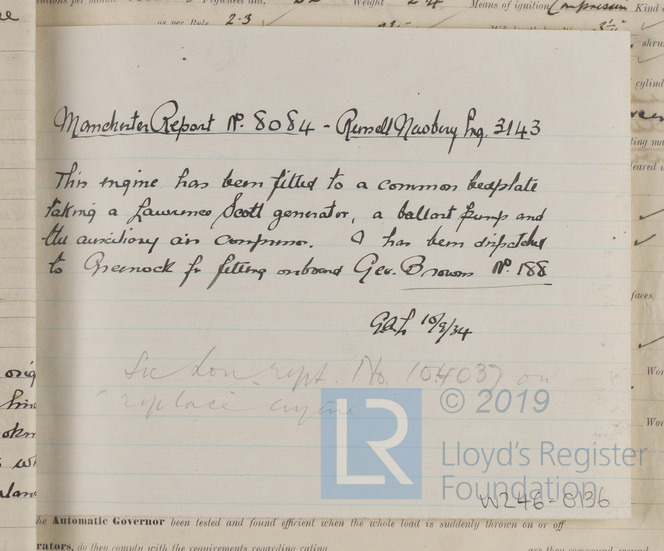 Means of ignition Compression Kind
as per Rule 2.3
cylind
Manchester Report No. 8084 - Russell Newbury Eng. 3143
This engine has been fitted to a common bedplate
taking a Lawrence Scott generator, a ballast pump and
the auxiliary air compressor. It has been dispatched
to Greenock for fitting onboard Geo. Browns No. 188
10/9/34
See Lon. rept. No. 104037 on
replace engine
LR
© 2019
Lloyd's Register
Foundation
W246-0136
he Automatic Governor been tested and found efficient when the whole load is suddenly thrown on or off
rators, do they comply with the requirements regarding rating